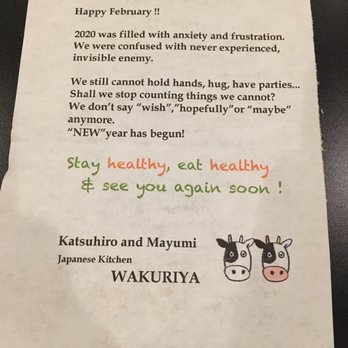 Happy February !!
2020 was filled with anxiety and frustration.
We were confused with never experienced,
invisible enemy.
We still cannot hold hands, hug, have parties...
Shall we stop counting things we cannot?
We don't say "wish","hopefully"or "maybe"
anymore.
"NEW"year has begun!
Stay healthy, eat healthy
& see you again soon !
Katsuhiro and Mayumi
Japanese Kitchen
WAKURIYA